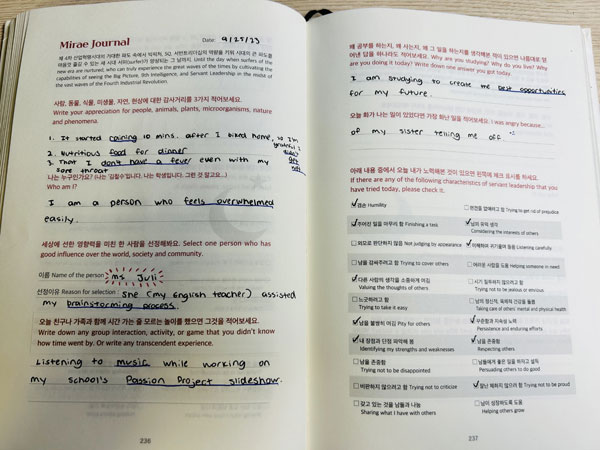 Mirae Journal
Date: 9/25/23
제 4차 산업혁명시대의 거대한 파도 속에서 빅픽처, SQ, 서번트리더십의 역량을 키워 시대의 큰 파도를
마음껏 즐길 수 있는 새 시대 서퍼(surfer)가 양성되는 그 날까지. Until the day when surfers of the
new era are nurtured, who can truly experience the great waves of the times by cultivating the
capabilities of seeing the Big Picture, 9th Intelligence, and Servant Leadership in the midst of
the vast waves of the Fourth Industrial Revolution.
사람, 동물, 식물, 미생물, 자연, 현상에 대한 감사거리를 3가지 적어보세요.
Write your appreciation for people, animals, plants, microorganisms, nature
and phenomena.
1. It started raining 10 mins. after I biked home, so I'm
grateful I
didn't
get
wet
2. Nutritious food for dinner
3. That I don't have a fever even with my
sore throat
나는 누구인가요? (나는 '김철수'입니다. 나는 학생입니다. 그런 것 말고요..)
Who am I?
I am a person who feels overwhelmed
easily.
세상에 선한 영향력을 미친 한 사람을 선정해봐요. Select one person who has
good influence over the world, society and community.
이름 Name of the person Ms. Juli
선정이유 Reason for selection She (my English teacher) assisted
my brainstorming process.
오늘 친구나 가족과 함께 시간 가는 줄 모르는 놀이를 했으면 그것을 적어보세요.
Write down any group interaction, activity, or game that you didn't know
how time went by. Or write any transcendent experience.
Listening to music while working on
my school's Passion Project slideshow.
236
왜 공부를 하는지, 왜 사는지, 왜 그 일을 하는지를 생각해본 적이 있으면 나름대로 얻
어낸 답을 하나라도 적어보세요. Why are you studying? Why do you live? Why
are you doing it today? Write down one answer you got today.
I am studying to create the best opportunities
for my future.
오늘 화가 나는 일이 있었다면 가장 화난 일을 적어보세요. I was angry because...
of my sister telling me off
아래 내용 중에서 오늘 내가 노력해본 것이 있으면 왼쪽에 체크 표시를 하세요.
If there are any of the following characteristics of servant leadership that you
have tried today, please check it.
겸손 Humility
편견을 없애려고 함 Trying to get rid of prejudice
주어진 일을 마무리 함 Finishing a task
남의 유익 생각
Considering the interests of others
외모로 판단하지 않음 Not judging by appearance
이해하며 귀기울여 들음 Listening carefully
남을 감싸주려고 함 Trying to cover others
어려운 사람을 도와줌 Helping someone in need
다른 사람의 생각을 소중하게 여김
Valuing the thoughts of others
시기 질투하지 않으려고 함
Trying not to be jealous or envious
느긋하려고 함
Trying to take it easy
남의 정신적, 육체적 건강을 돌봄
Taking care of others' mental and physical health
남을 불쌍히 여김 Pity for others
꾸준함과 지속성 노력
Persistence and enduring efforts
내 장점과 단점 파악해 봄
Identifying my strengths and weaknesses
남을 존중함
Respecting others
남을 존중함
Trying not to be disappointed
남들에게 좋은 일을 하자고 설득
Persuading others to do good
비판하지 않으려고 함 Trying not to criticize
잘난 체하지 않으려 함 Trying not to be proud
갖고 있는 것을 남들과 나눔
Sharing what I have with others
남이 성장하도록 도움
Helping others grow
237